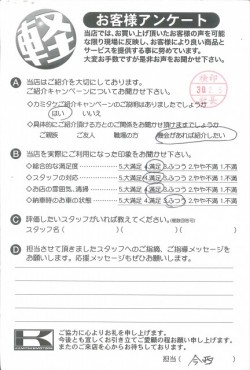 軽
お客様アンケート
当店では、お買い上げ頂いたお客様の声を可能
な限り現場に反映し、お客様により良い商品と
サービスを提供する事に努めています。
大変お手数ですが是非お声をお聞かせ下さい。
Ⓐ 当店はご紹介を大切にしております。
ご紹介キャンペーンについてお聞かせ下さい。
◇カミタケご紹介キャンペーンのご説明はありましたでしょうか
はい いいえ
◇具体的にご紹介頂ける方とのご関係をお聞かせ頂けますでしょうか
ご親族 ご友人 職場の方 機会があれば紹介したい
Ⓑ 当店を実際にご利用になった印象をお聞かせ下さい。
◇総合的な満足度 5.大満足 4.満足 3.ふつう 2.やや不満 1.不満
◇スタッフの対応 5.大満足 4.満足 3.ふつう 2.やや不満 1.不満
◇お店の雰囲気、清掃 5.大満足 4.満足 3.ふつう 2.やや不満 1.不満
◇納車時のお車の状態 5.大満足 4.満足 3.ふつう 2.やや不満 1.不満
Ⓒ 評価したいスタッフがいれば教えてください。(複数回答可)
スタッフ名( )( )( )
Ⓓ 担当させて頂きましたスタッフへのご指摘、ご指導メッセージを
お願いします。応援メッセージもぜひお願いします。
ご協力に心よりお礼を申し上げます。
今後とも宜しくお引き立てご愛顧の程お願い申し上げます。
またのご来店を心からお待ちしております。
担当( )